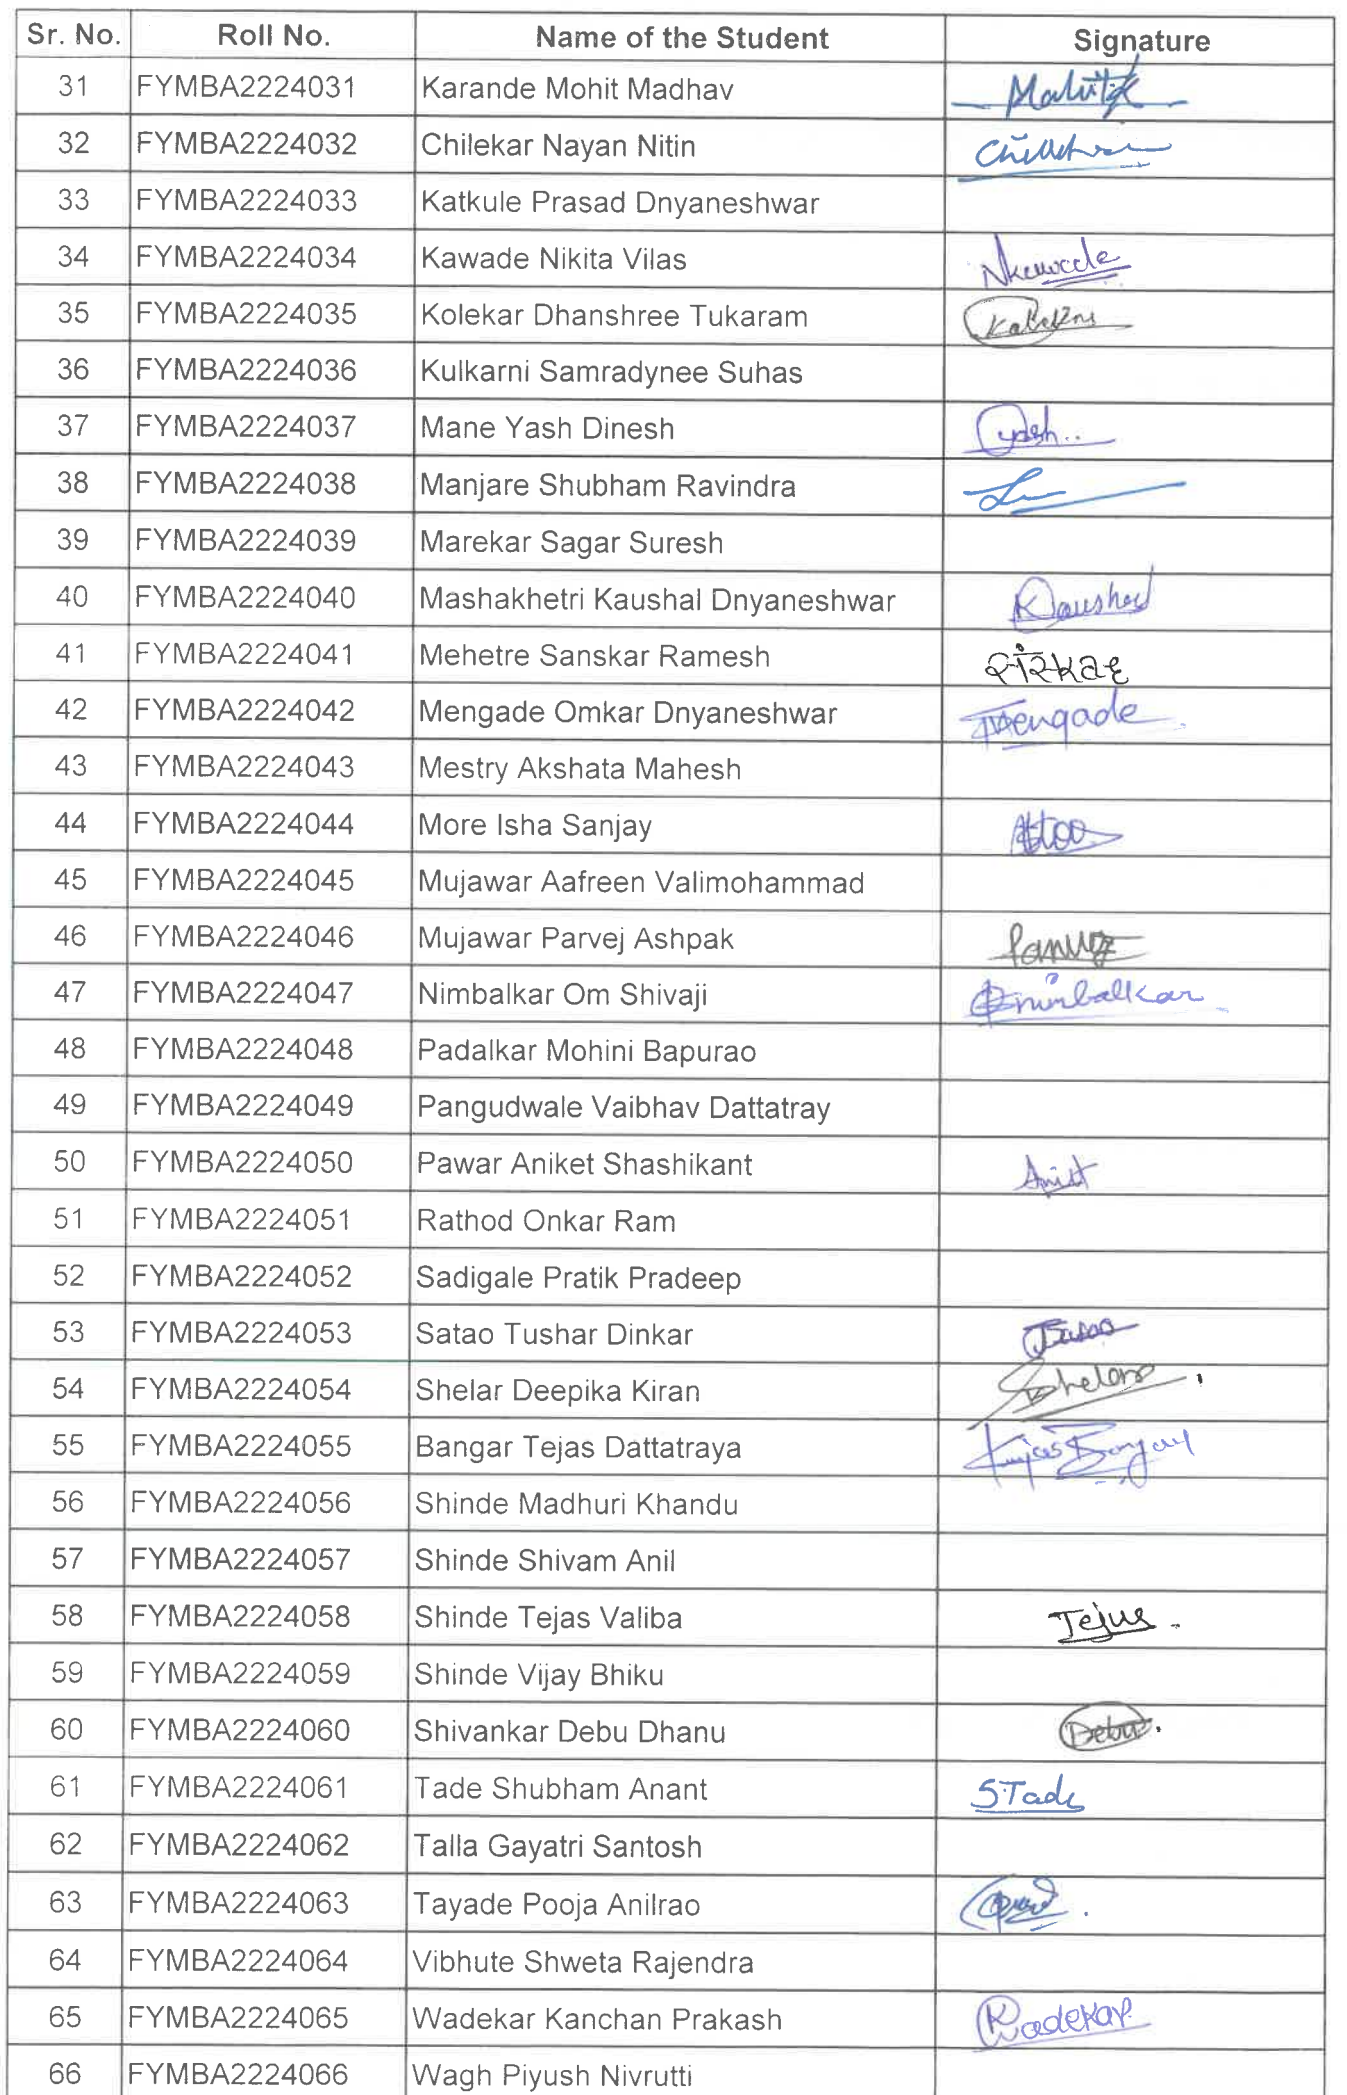 Sr. No. Roll No. Name of the Student Signature
31 FYMBA2224031 Karande Mohit Madhav
32 FYMBA2224032 Chilekar Nayan Nitin
33 FYMBA2224033 Katkule Prasad Dnyaneshwar
34 FYMBA2224034 Kawade Nikita Vilas Nkawade
35 FYMBA2224035 Kolekar Dhanshree Tukaram
36 FYMBA2224036 Kulkarni Samradynee Suhas
37 FYMBA2224037 Mane Yash Dinesh Yash..
38 FYMBA2224038 Manjare Shubham Ravindra
39 FYMBA2224039 Marekar Sagar Suresh
40 FYMBA2224040 Mashakhetri Kaushal Dnyaneshwar Kaushal
41 FYMBA2224041 Mehetre Sanskar Ramesh
42 FYMBA2224042 Mengade Omkar Dnyaneshwar Mengade
43 FYMBA2224043 Mestry Akshata Mahesh
44 FYMBA2224044 More Isha Sanjay
45 FYMBA2224045 Mujawar Aafreen Valimohammad
46 FYMBA2224046 Mujawar Parvej Ashpak
47 FYMBA2224047 Nimbalkar Om Shivaji Onimbalkar
48 FYMBA2224048 Padalkar Mohini Bapurao
49 FYMBA2224049 Pangudwale Vaibhav Dattatray
50 FYMBA2224050 Pawar Aniket Shashikant
51 FYMBA2224051 Rathod Onkar Ram
52 FYMBA2224052 Sadigale Pratik Pradeep
53 FYMBA2224053 Satao Tushar Dinkar
54 FYMBA2224054 Shelar Deepika Kiran
55 FYMBA2224055 Bangar Tejas Dattatraya Tejas Bangar
56 FYMBA2224056 Shinde Madhuri Khandu
57 FYMBA2224057 Shinde Shivam Anil
58 FYMBA2224058 Shinde Tejas Valiba Tejus
59 FYMBA2224059 Shinde Vijay Bhiku
60 FYMBA2224060 Shivankar Debu Dhanu Debu.
61 FYMBA2224061 Tade Shubham Anant S.Tade
62 FYMBA2224062 Talla Gayatri Santosh
63 FYMBA2224063 Tayade Pooja Anilrao
64 FYMBA2224064 Vibhute Shweta Rajendra
65 FYMBA2224065 Wadekar Kanchan Prakash KWadekar
66 FYMBA2224066 Wagh Piyush Nivrutti